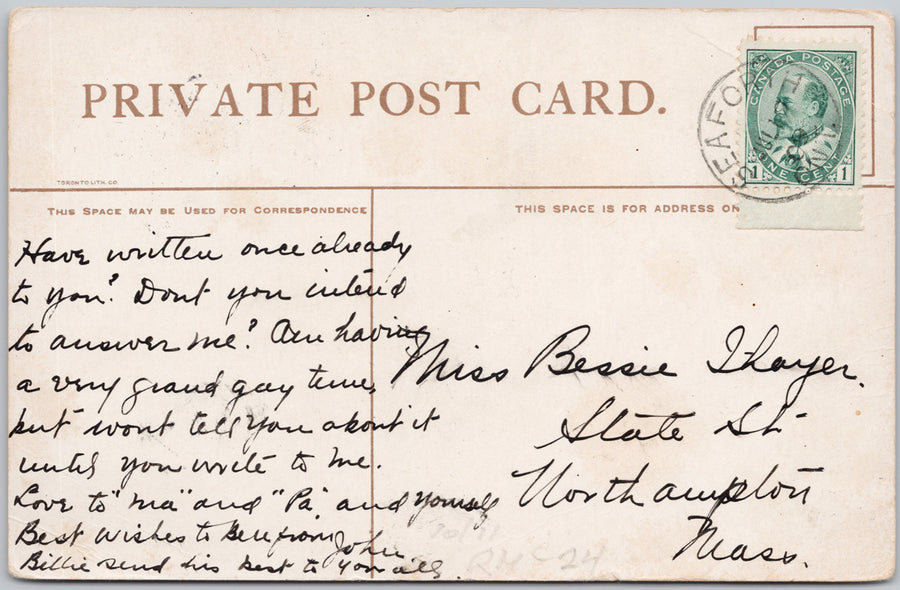 PRIVATE POST CARD.
CANADA POSTAGE
1 ONE CENT 1
SEAFORTH
TORONTO LITH. CO.
THIS SPACE MAY BE USED FOR CORRESPONDENCE
THIS SPACE IS FOR ADDRESS ON
Have written once already
to you? Dont you intend
to answer me? Am having
a very grand gay time,
but wont tell you about it
until you write to me.
Love to "Ma" and "Pa" and yourself
Best wishes to Ben from John
Billie send his best to you all.
Miss Bessie Thayer.
State St
Northampton
Mass.